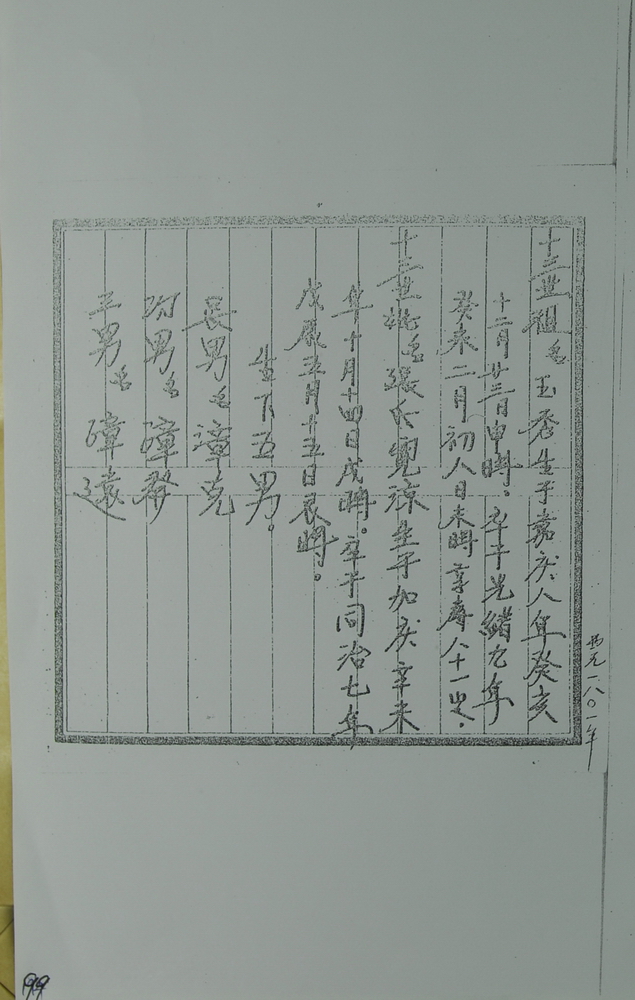 西元一八〇一年
十三世祖名玉秀生于嘉庆八年癸亥
十二月廿三日申時、卒于光緒九年
癸未二月初八日未時享寿八十一岁.
十三世妣名張氏寬諒生于加庆辛未
年十月十四日戌時。卒于同治七年
戊辰五月十五日辰時。
生下五男。
長男名 漳克
次男名 璋發
三男名 璋遠
99